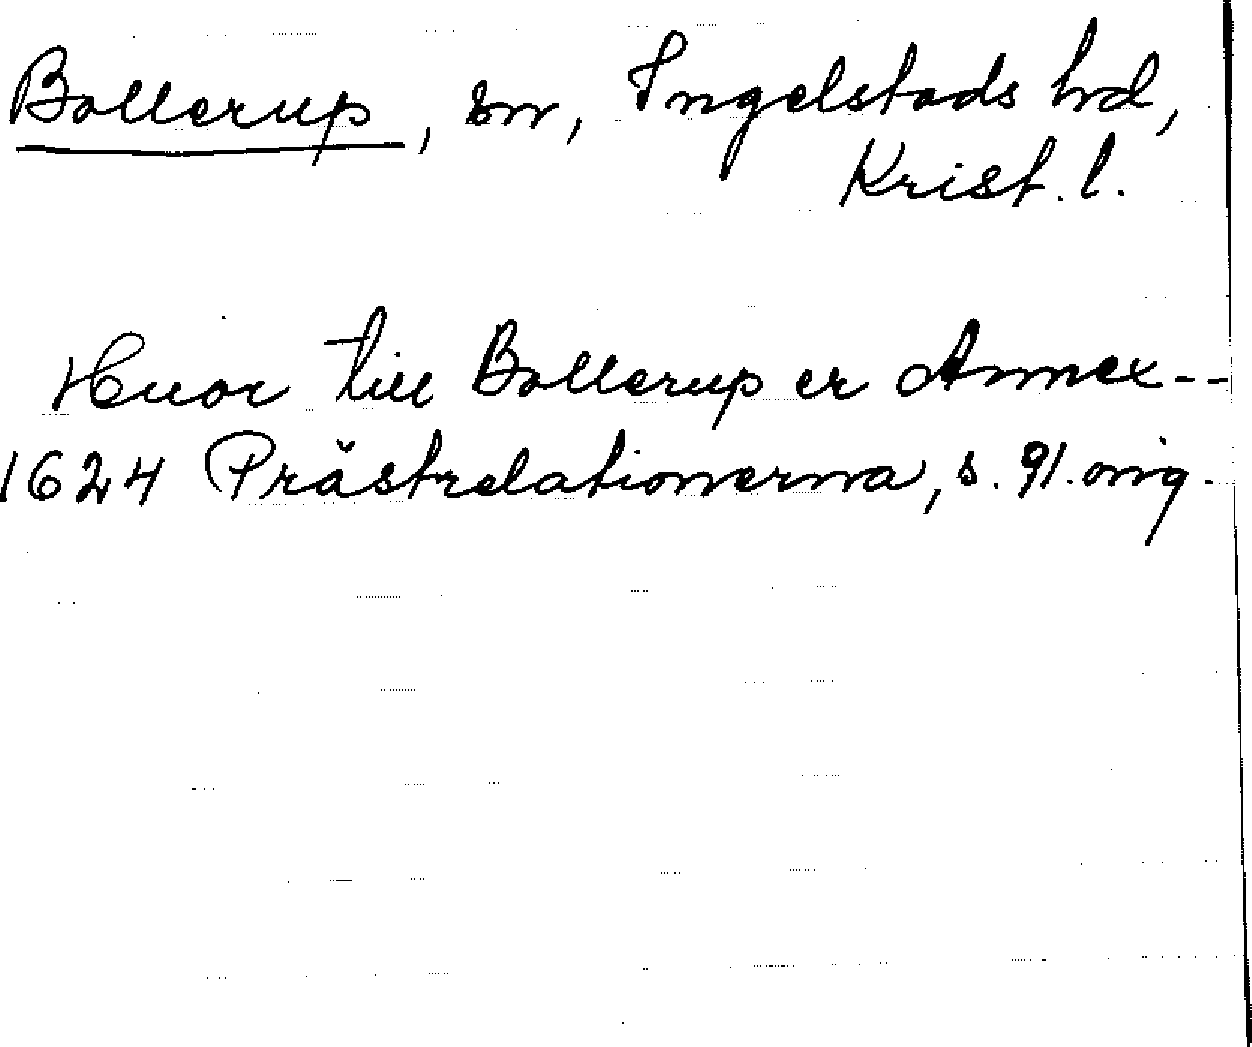 Bollerup, sn, Ingelstads hrd,
Krist. l.
Huor till Bollerup er Annex--
1624 Prästrelationerna, s. 91. orig.